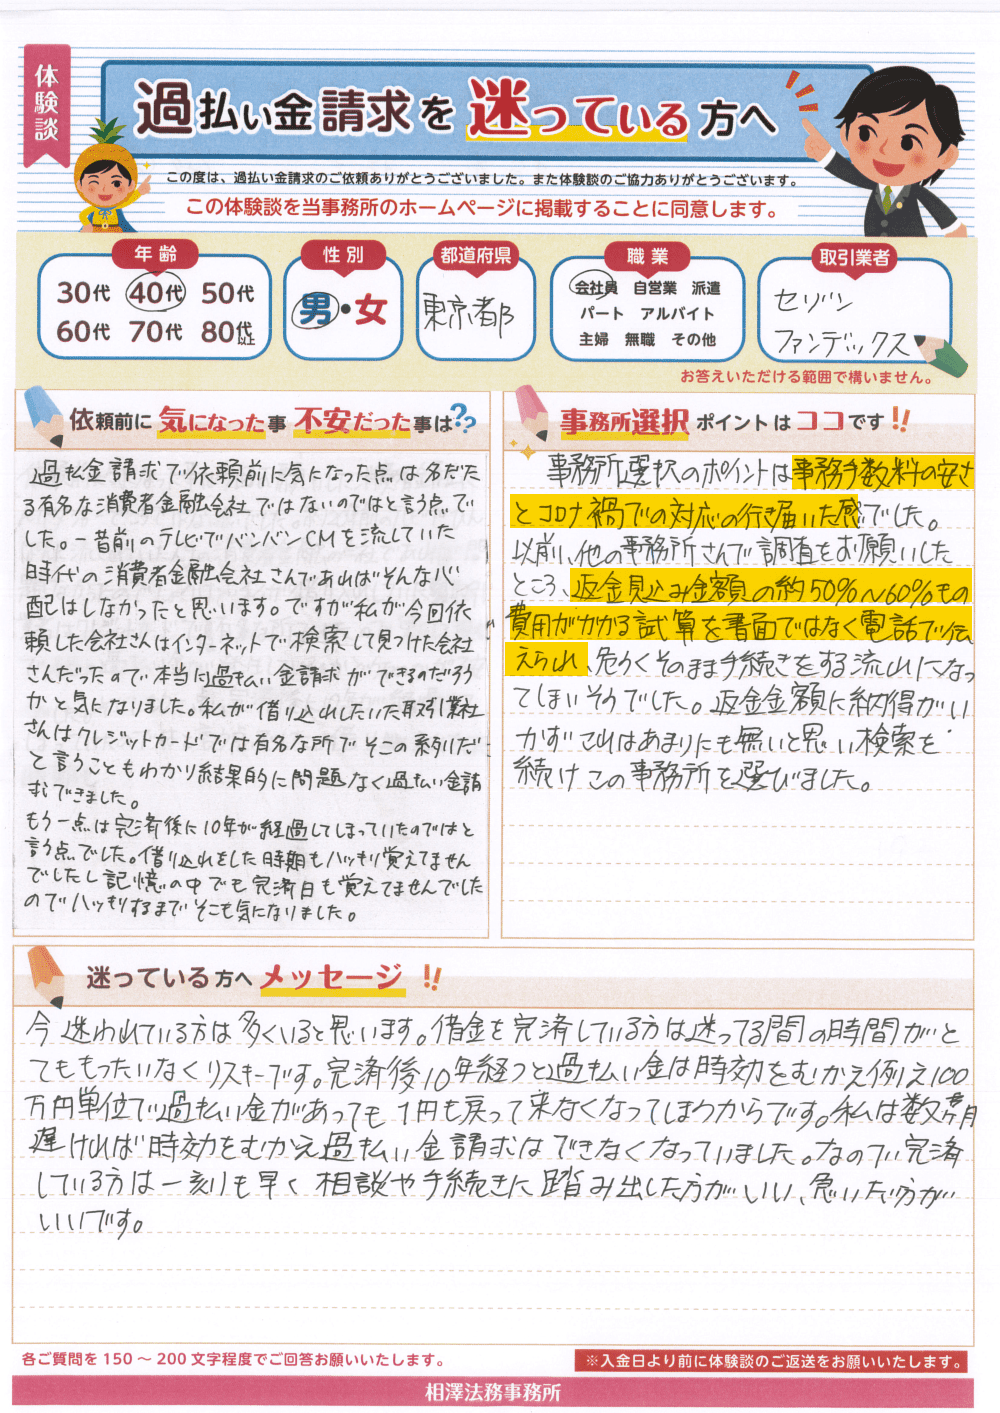 体験談
過払い金請求を迷っている方へ
この度は、過払い金請求のご依頼ありがとうございました。また体験談のご協力ありがとうございます。
この体験談を当事務所のホームページに掲載することに同意します。
年齢
30代 40代 50代
60代 70代 80代以上
性別
男・女
都道府県
東京都
職業
会社員 自営業 派遣
パート アルバイト
主婦 無職 その他
取引業者
セゾン
ファンデックス
お答えいただける範囲で構いません。
依頼前に気になった事不安だった事は??
過払金請求で依頼前に気になった点は名だた
る有名な消費者金融会社ではないのではと言う点で
した。一昔前のテレビでバンバンCMを流していた
時代の消費者金融会社さんであればそんな心
配はしなかったと思います。ですが私が今回依
頼した会社さんはインターネットで検索して見つけた会社
さんだったので本当に過払い金請求ができるのだろう
かと気になりました。私が借り込れしたいた取引業社
さんはクレジットカードでは有名な所でそこの系列だ
と言うこともわかり結果的に問題なく過払い金請
求できました。
もう一点は完済後に10年が経過してしまっていたのではと
言う点でした。借り込れをした時期もハッキリ覚えてません
でしたし記憶の中でも完済日も覚えてませんでした
のでハッキリするまでそこも気になりました。
事務所選択ポイントはココです!!
事務所選択のポイントは事務手数料の安さ
とコロナ禍での対応の行き届いた感でした。
以前、他の事務所さんで調査をお願いした
ところ、返金見込み金額の約50%~60%もの
費用がかかる試算を書面ではなく電話で伝
えられ、危うくそのまま手続きをする流れになっ
てしまいそうでした。返金金額に納得がい
かずこれはあまりにも無いと思い検索を
続けこの事務所を選びました。
迷っている方へメッセージ!!
今迷われている方は多くいると思います。借金を完済している方は迷ってる間の時間がと
てももったいなくリスキーです。完済後10年経つと過払い金は時効をむかえ例え100
万円単位で過払い金があっても1円も戻って来なくなってしまうからです。私は数ヶ月
遅ければ時効をむかえ過払い金請求はできなくなっていました。なので完済
している方は一刻も早く相談や手続きに踏み出した方がいい、急いだ方が
いいです。
各ご質問を150～200文字程度でご回答お願いいたします。
※入金日より前に体験談のご返送をお願いいたします。
相澤法務事務所